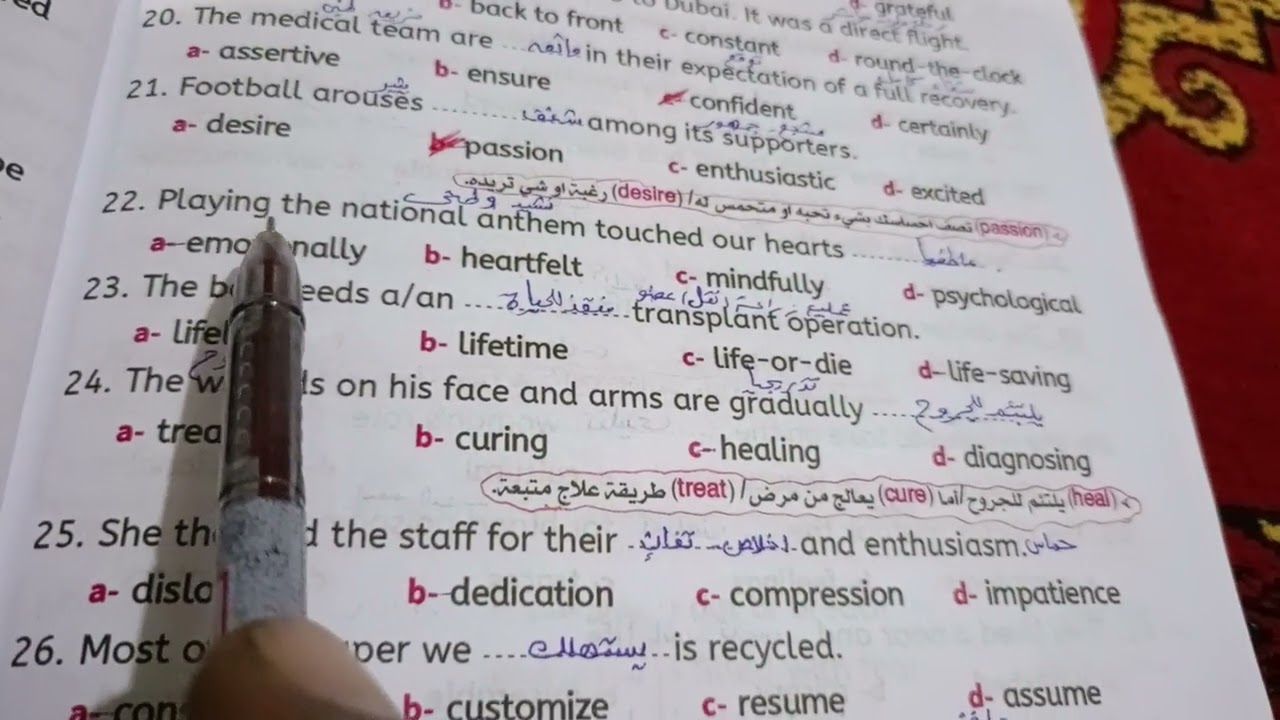 to Dubai. It was a direct flight.
b- back to front c- constant d- round-the-clock
d- grateful
20. The medical team are ... واثقه in their expectation of a full recovery.
a- assertive b- ensure c- confident d- certainly
21. Football arouses .......... شغف among its supporters.
a- desire b- passion c- enthusiastic d- excited
> (passion) تصف احساسك بشيء تحبه او متحمس له / (desire) رغبة او شي تريده.
نشيد وطني
22. Playing the national anthem touched our hearts .......... عاطفيا .
a- emo nally b- heartfelt c- mindfully d- psychological
23. The b eeds a/an .... منقذ للحياة .. transplant operation.
a- lifel b- lifetime c- life-or-die d- life-saving
تدريجيا
24. The w ds on his face and arms are gradually ..... يلتئم للجروح
a- trea b- curing c- healing d- diagnosing
> (heal) يلتئم للجروح / أما (cure) يعالج من مرض / (treat) طريقة علاج متبعة.
25. She th d the staff for their . اخلاص - تفاني . and enthusiasm. حماس
a- dislo b- dedication c- compression d- impatience
26. Most o per we .... يستهلك .. is recycled.
a- con b- customize c- resume d- assume